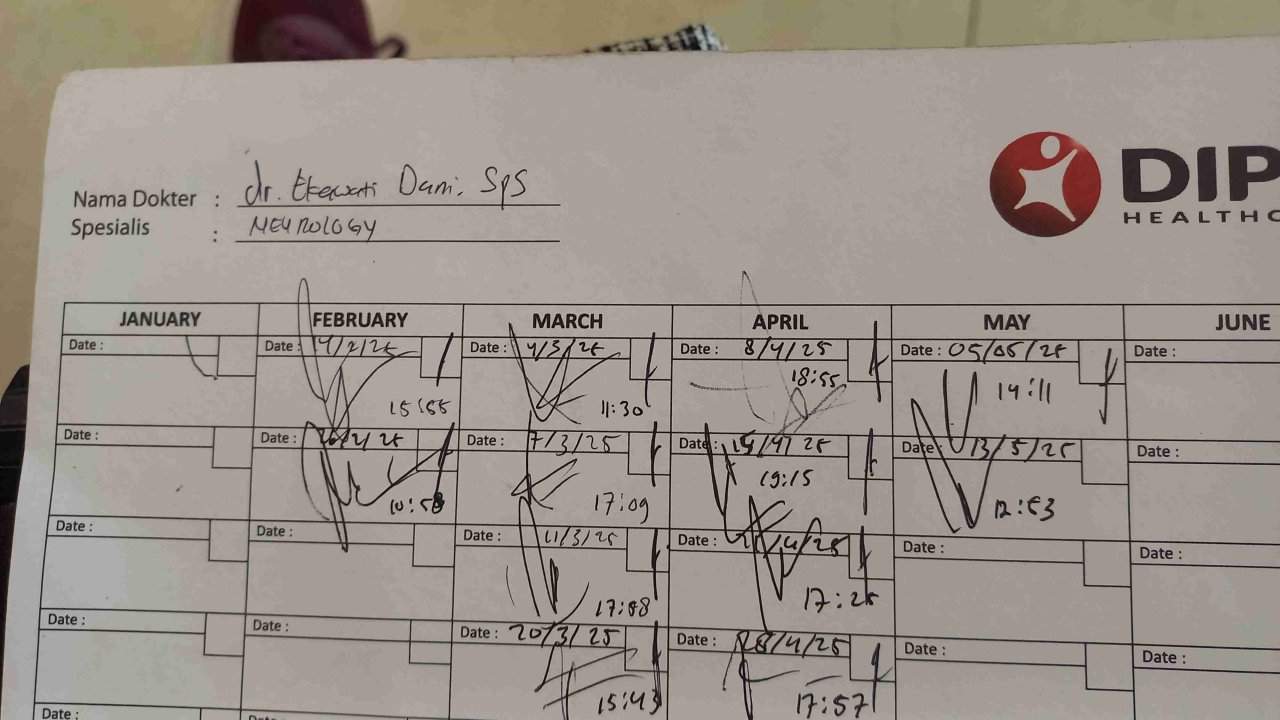 Nama Dokter : dr. Ekawati Dani. SpS
Spesialis : NEUROLOGY
DIP
HEALTHC
JANUARY FEBRUARY MARCH APRIL MAY JUNE
Date : Date : 14/2/25 Date : 4/3/25 Date : 8/4/25 Date : 05/05/25 Date :
15:55 11:30 18:55 14:11
Date : Date : 26/2/25 Date : 7/3/25 Date : 15/4/25 Date : 13/5/25 Date :
10:58 17:09 19:15 12:53
Date : Date : Date : 11/3/25 Date : /4/25 Date : Date :
17:58 17:25
Date : Date : Date : 20/3/25 Date : 28/4/25 Date : Date :
15:43 17:57
Date : Date :